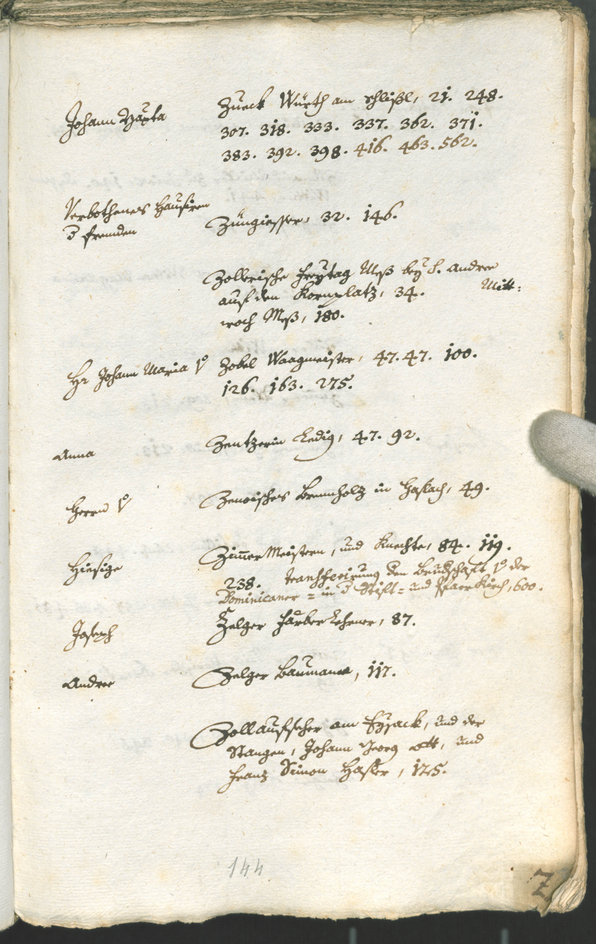 Johann Zueck Würth am Schlißl, 21. 248.
307. 318. 333. 337. 362. 371.
383. 392. 398. 416. 463. 562.
Verbothenes Hausiren
d fremden Züngiesser, 32. 146.
Zollerische Freytag Meß bey S. Andree
auf den Kornplatz, 34. Mitt-
woch Meß, 180.
Hr Johann Maria v Zobel Waagmeister, 47. 47. 100.
126. 163. 275.
Anna Zentzerin Ledig, 47. 92.
Herrn v Zenoisches Brennholz in Haslach, 49.
Hiesige Zimer Meistern, und Knechte, 84. 119.
238. transferirung den Brudschaft v der
Dominicaner = in d Stift = und Pfarr Kirch, 600.
Joseph Zelger färber Lehrner, 87.
Andree Zelger Baumann, 117.
Zollaufseher am Eysack, und der
Stangen, Johann Georg ott, und
Franz Simon Hasler, 125.
144
Z